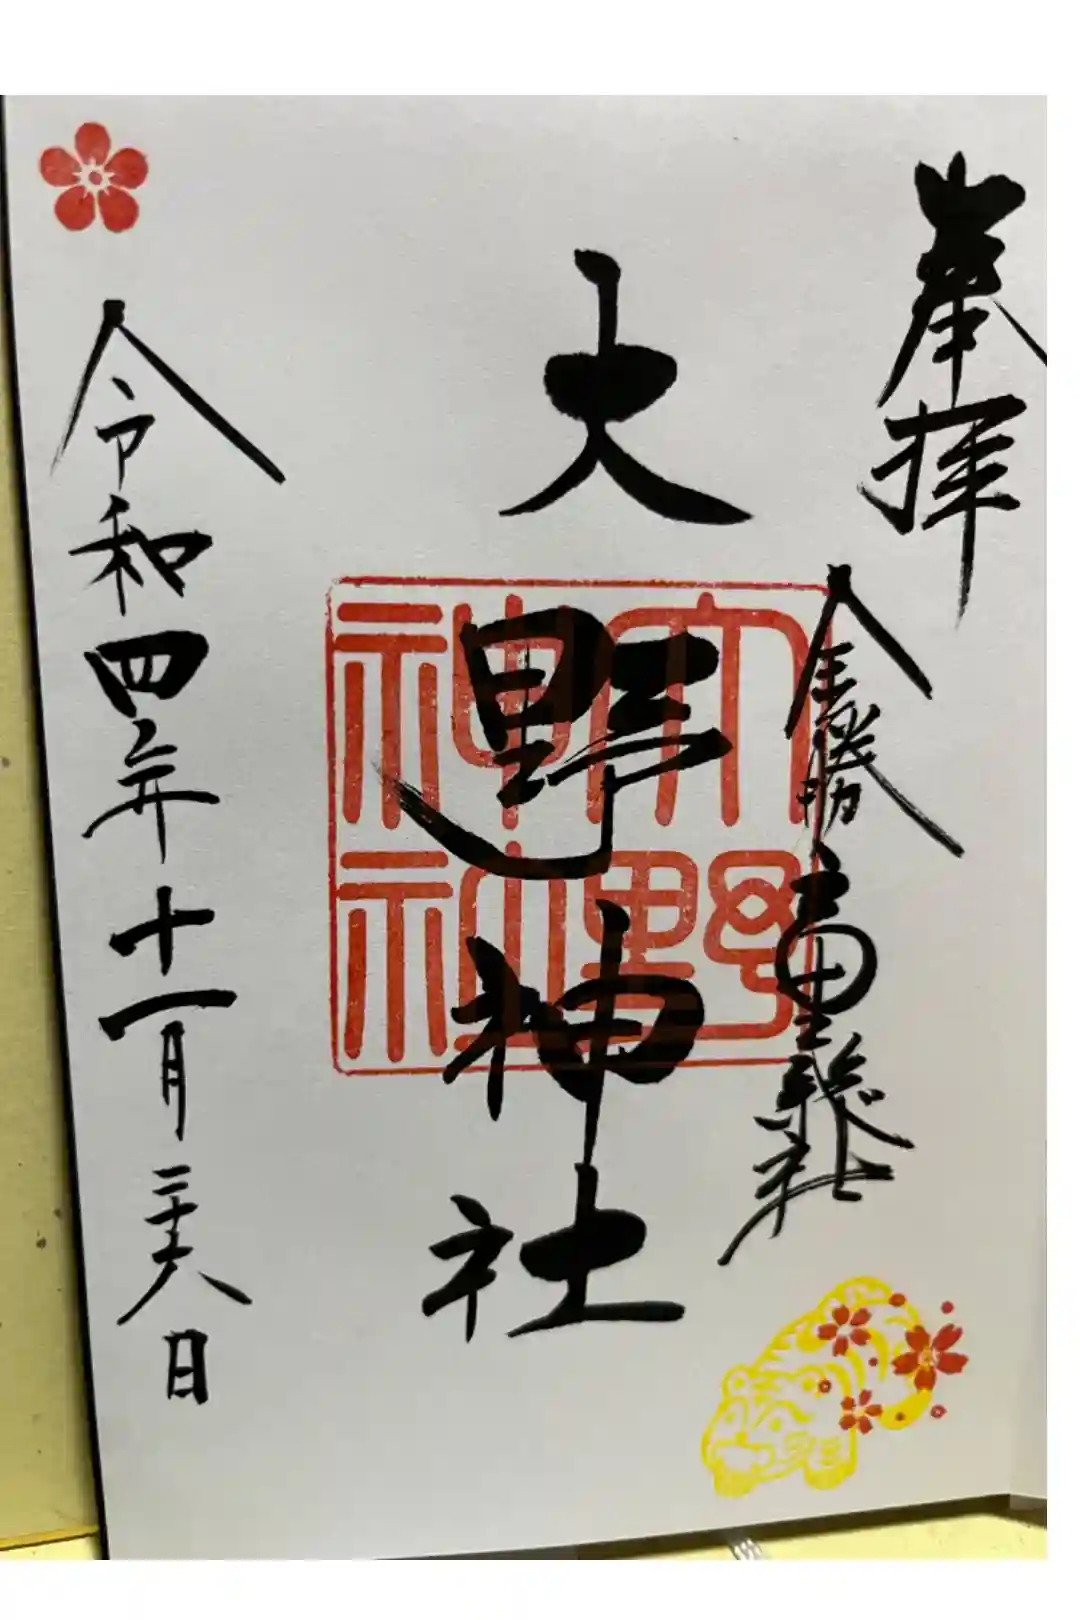 奉拝
金勝
総社
大野神社
大野神社
令和四年十一月二十六日